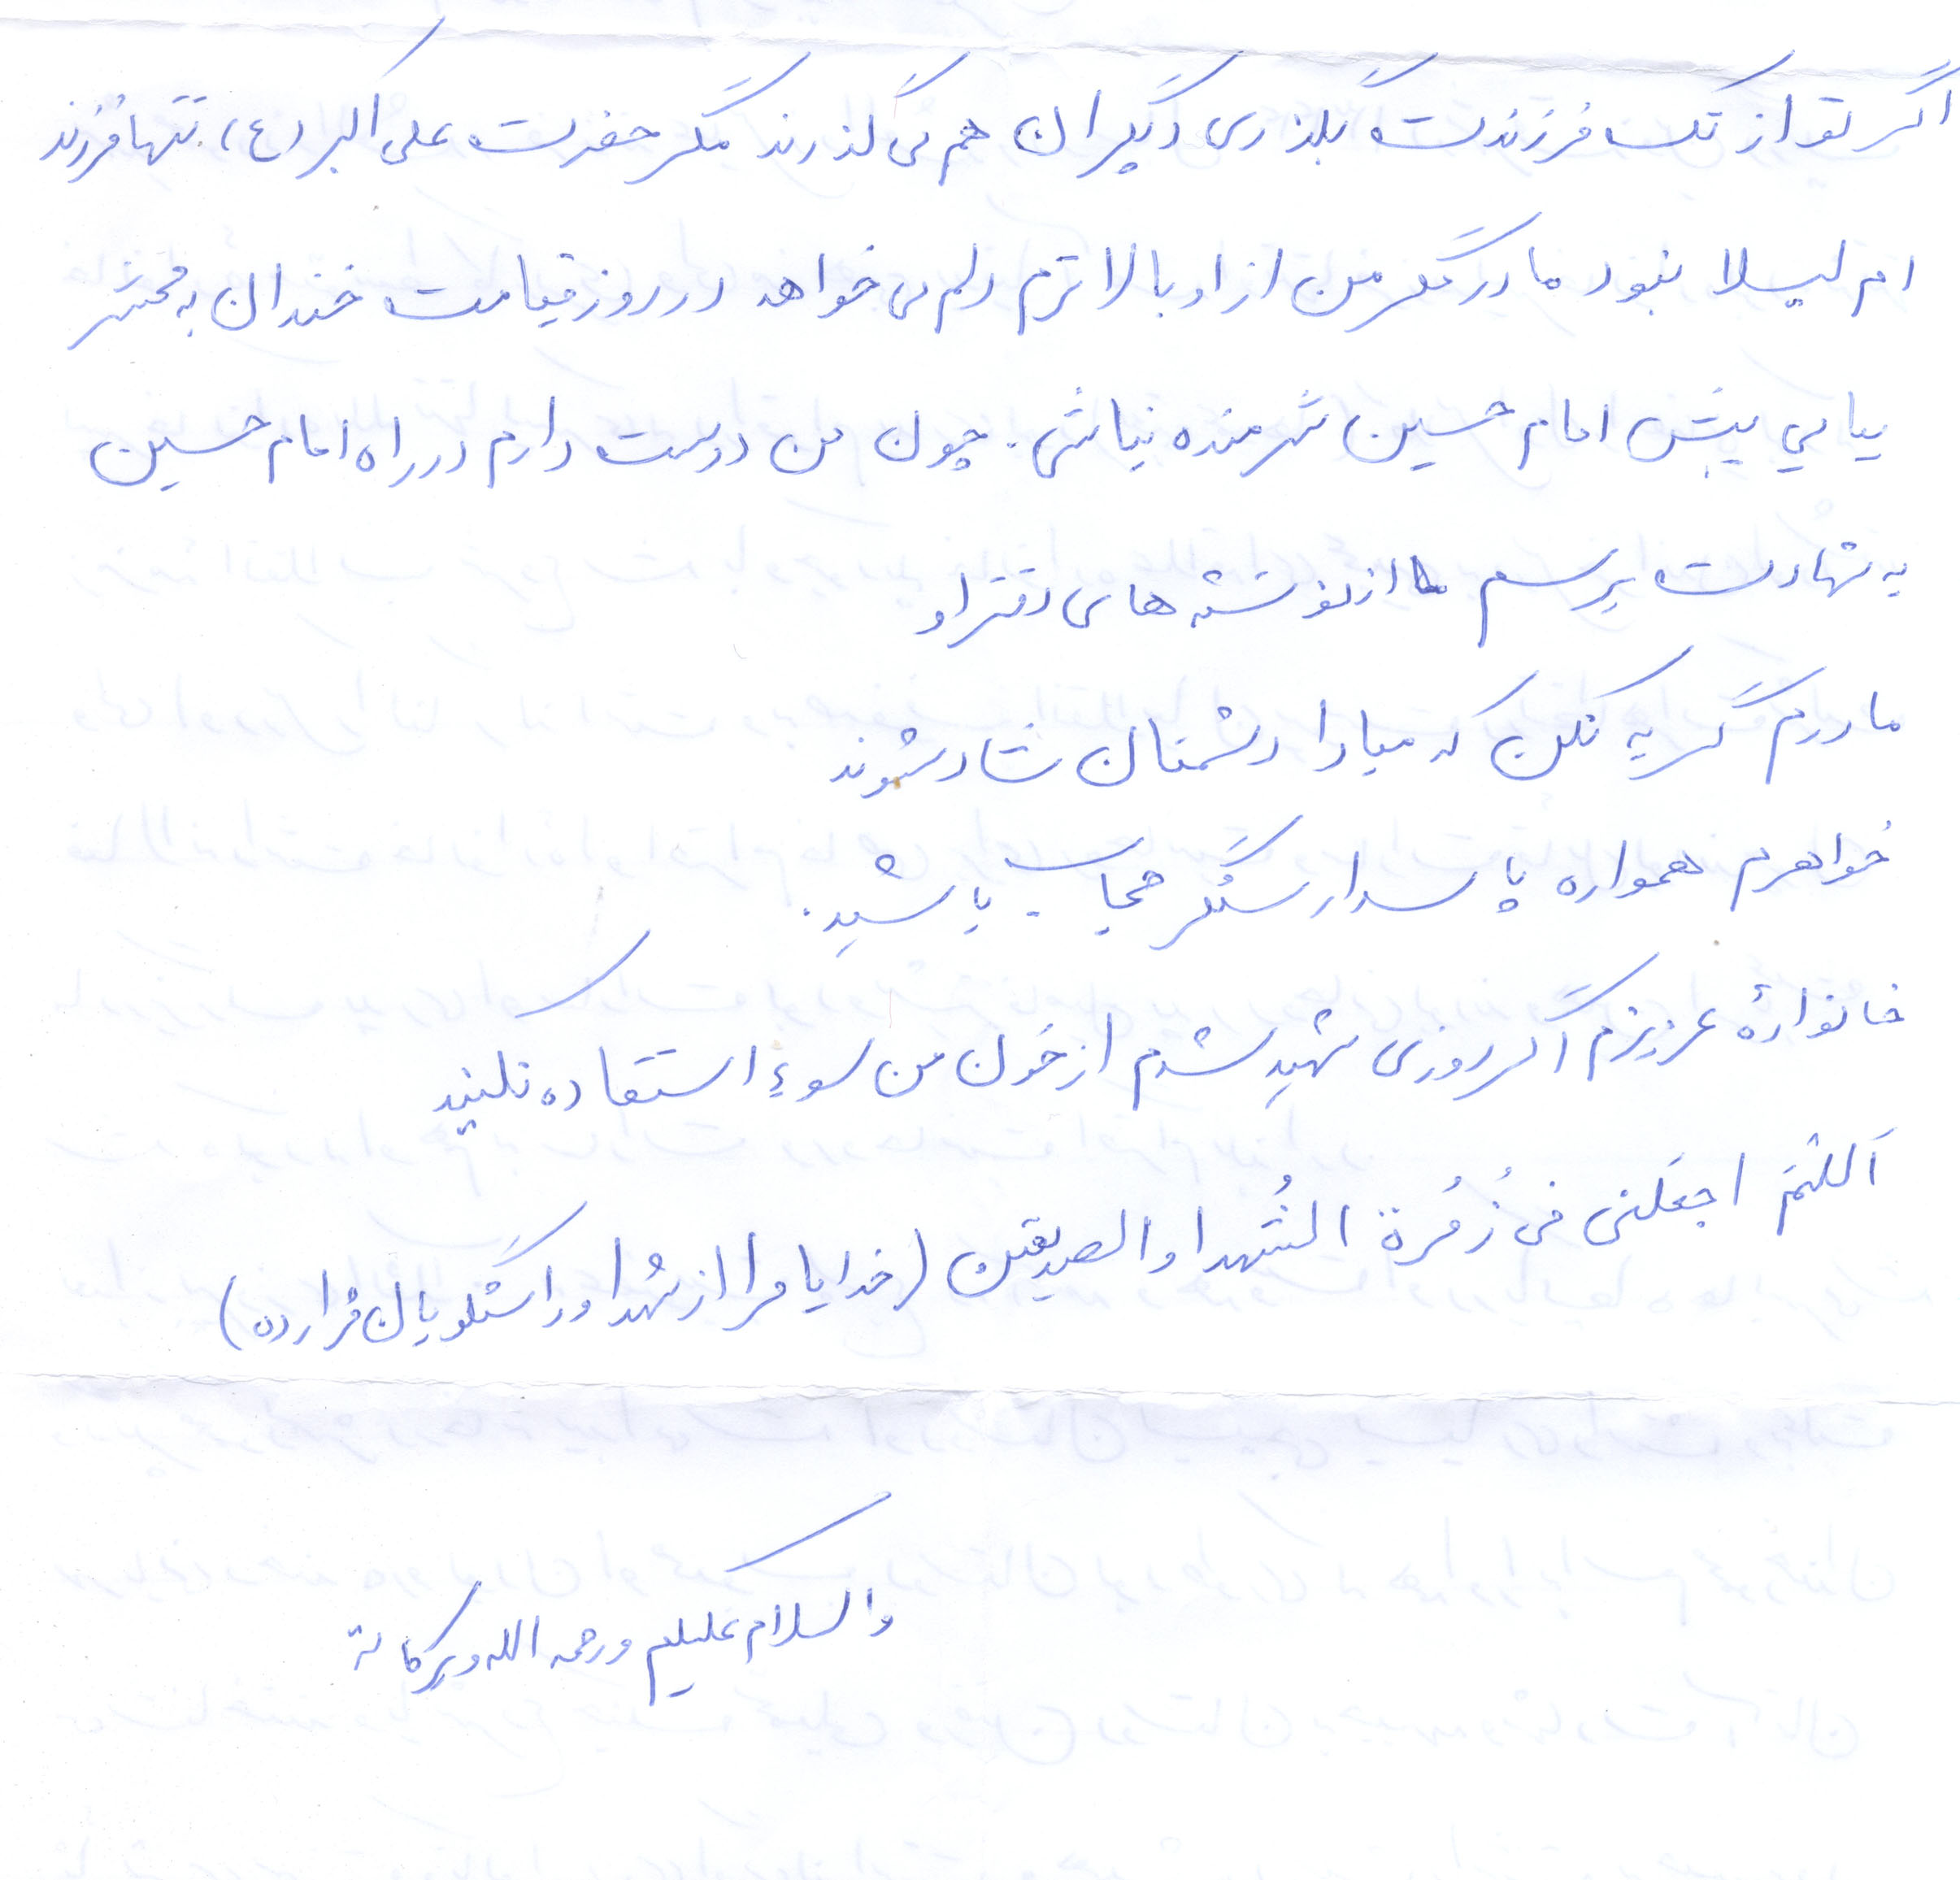 اگر تو از تک فرزندت بگذری دگیران هم می گذرند مگر حضرت علی اکبر (ع)، تنها فرزند
ام لیلا نبود مادر مگر من از او بالاترم دلم می خواهد در روز قیامت خندان به محشر
بیایی پیش امام حسین شرمنده نباشی. چون من دوست دارم در راه امام حسین
به شهادت برسم از نوشته های دفتر او
مادرم گریه نکن که مبادا دشمنان شاد شوند
خواهرم همواره پاسدار سنگر حجاب باشید.
خانوادهٔ عزیزم اگر روزی شهید شدم از خون من سوءِ استفاده نکنید
اَللّهُمَّ اجعَلنی فی زُمُرة الشُهدا والصدیقین (خدایا مرا از شهدا و راستگویان قرار ده)
والسلام علیکم ورحمه الله وبرکاته